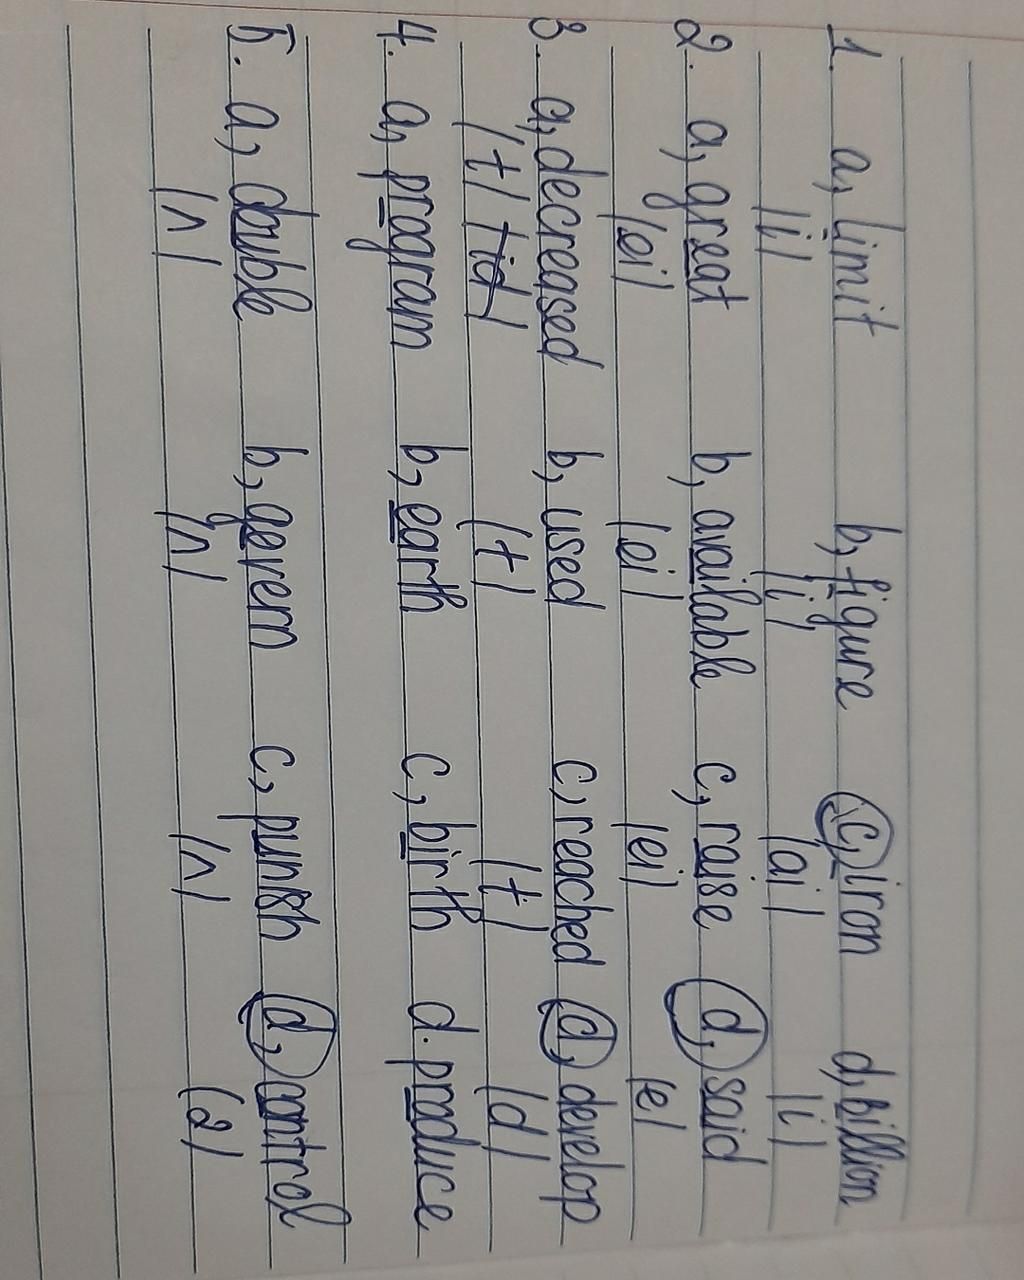 1. a, limit b, figure c, iron d, billion
/i/ /i/ /ai/ /i/
2. a, great b, available c, raise d, said
/ei/ /ei/ /ei/ /e/
3. a, decreased b, used c, reached d, develop
/t/ /t/ /t/ /d/
4. a, program b, earth c, birth d. produce
5. a, double b, govern c, punish d, control
/ʌ/ /ʌ/ /ʌ/ /ə/